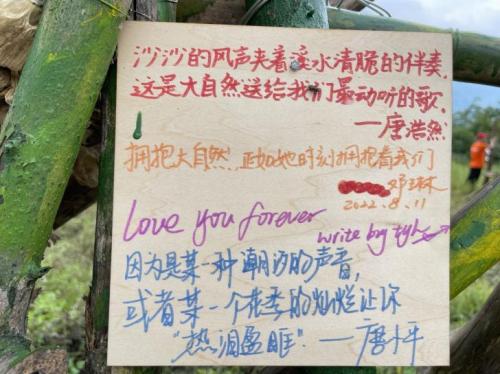 沙沙的风声夹着溪水清脆的伴奏,
这是大自然送给我们最动听的歌.
—唐浩然
拥抱大自然,正如她时刻拥抱着我们
邓琳
2022.8.11
Love you forever
write by tyh
因为是某一种潮汐的声音,
或者某一个花季的灿烂让你
"热泪盈眶".——唐小平